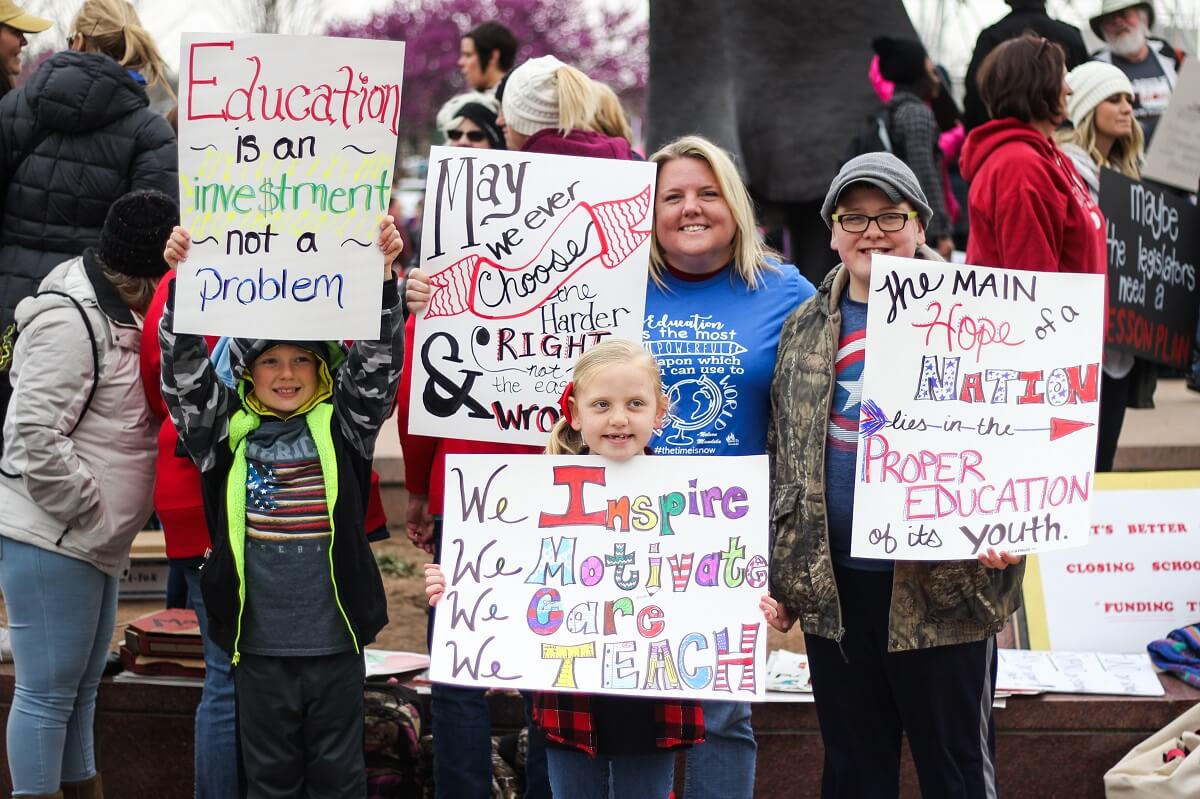 Education
is an
inve$tment
not a
Problem
May
we ever
Choose
the
Harder
RIGHT
not
the
& wro
Education
is the most
POWERFUL
weapon which
you can use to
WORLD
Nelson Mandela
#thetimeisnow
The MAIN
Hope of a
NATION
lies in the
PROPER
EDUCATION
of its youth.
We Inspire
We Motivate
We Care
We TEACH
maybe
the legislators
need a
LESSON PLAN
IT'S BETTER
CLOSING SCHOO
"FUNDING T